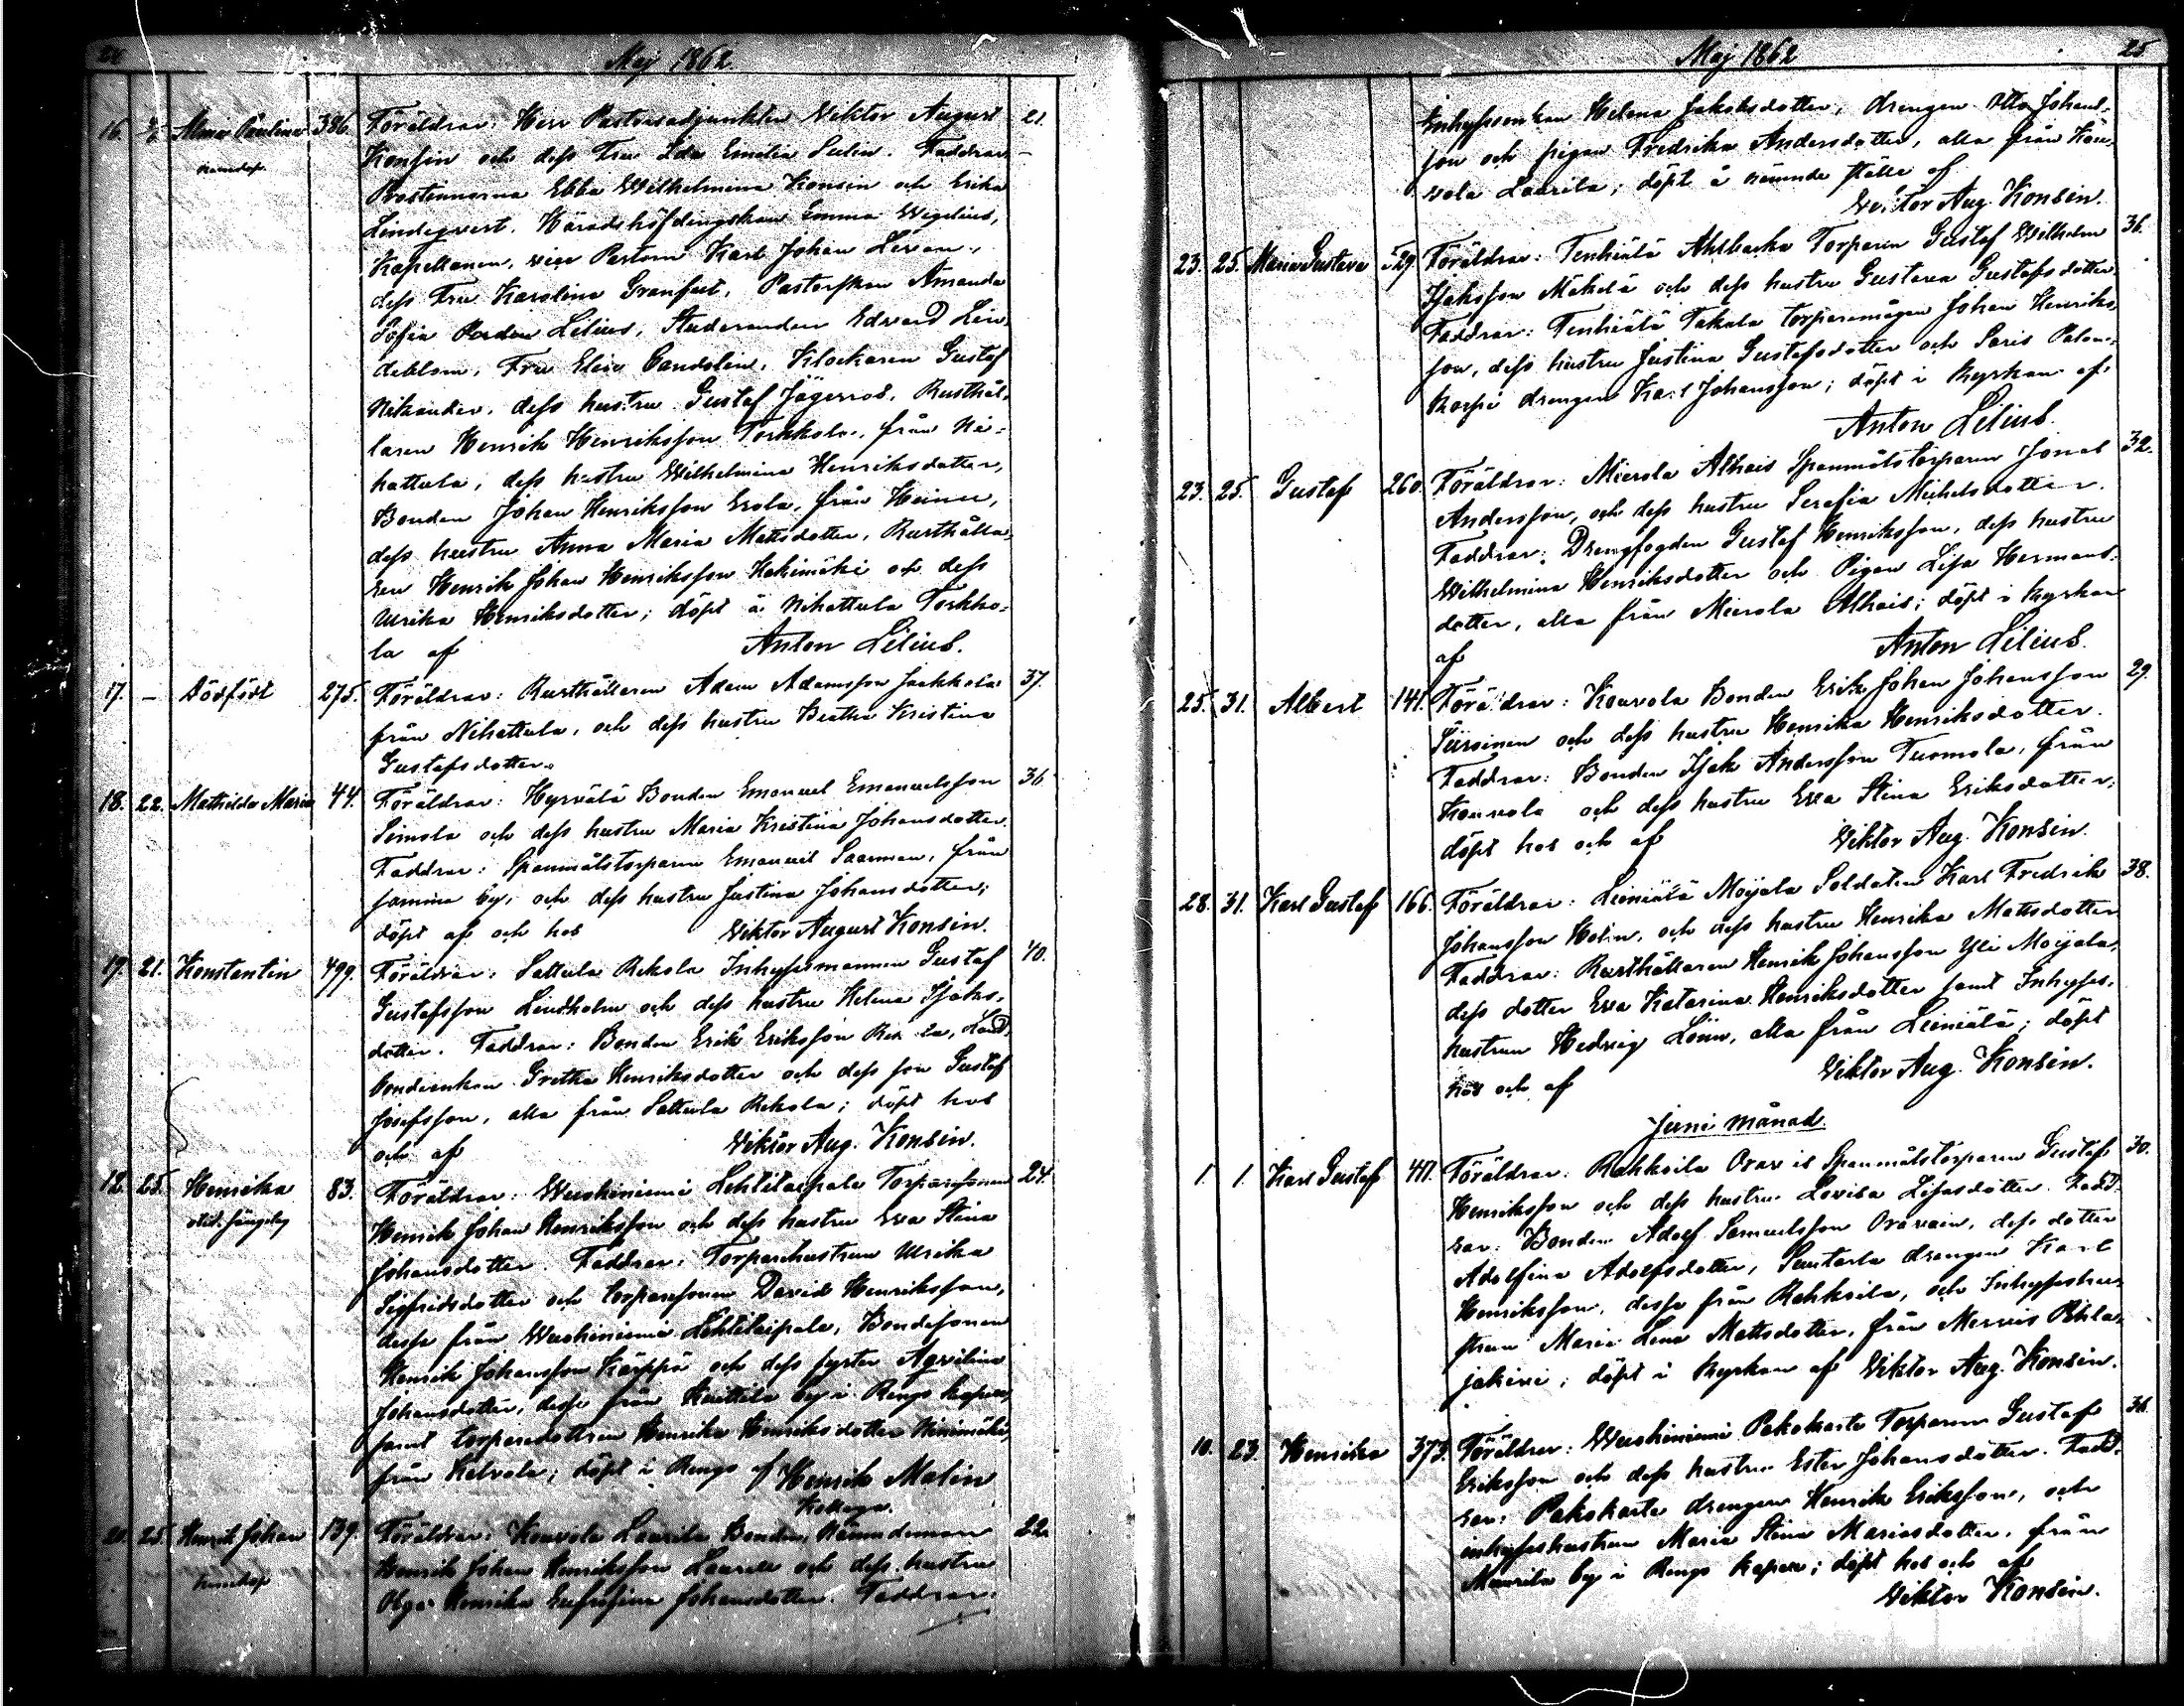 Maj 1862.
16. Alma Paulina 386. Föräldrar: Herr Pastorsadjunkten Viktor August 21.
Konsin och dess Fru Ida Emilia Selin. Faddrar
Prostinnorna Ebba Wilhelmina Konsin och Erika
Lindeqvist. Häradshöfdingskan Emma Wegelius,
Kapellanen, vice Pastorn Karl Johan Levan,
dess Fru Karolina Granfelt, Pastorskan Amanda
Sofia Lilius, Studeranden Edvard Lin-
deblom, Fru Elise Candolin, Klockaren Gustaf
Nikander, dess hustru Gustaf Jägerros, Rusthål-
laren Henrik Henriksson Torkkola, från Ni-
hattula, dess hustru Wilhelmina Henriksdotter,
Bonden Johan Henriksson Erola, från Heinu,
dess hustru Anna Maria Mattsdotter, Rusthålla-
ren Henrik Johan Henriksson Kakimäki och dess
Ulrika Henriksdotter; döpt å Nihattula Torkko-
la af Anton Lilius.
17. – Dödfödt 275. Föräldrar: Rusthållaren Adam Adamsson Jaakkola 37.
från Nihattula, och dess hustru Beatha Kristina
Gustafsdotter.
18. 22. Mathilda Maria 44. Föräldrar: Hyrvälä Bonden Emanuel Emanuelsson 36
Simola och dess hustru Maria Kristina Johansdotter.
Faddrar: Spanmålstorparen Emanuel Saarinen, från
samma by, och dess hustru Justina Johansdotter;
döpt af och hos Viktor August Konsin.
19. 21. Konstantin 499. Föräldrar: Sattula Rekola Inhysesmannen Gustaf 40.
Gustafsson Lindholm och dess hustru Helena Isaks-
dotter. Faddrar: Bonden Erik Eriksson
bondeenkan Gretha Henriksdotter och dess son Gustaf
Josefsson, alla från Sattula Rekola; döpt hos
och af Viktor Aug. Konsin.
12. 25. Henrika 83. Föräldrar: Wuohiniemi Lehtilaipala Torparesonen 24.
Henrik Johan Henriksson och dess hustru Eva Stina
Johansdotter. Faddrar: Torparehustrun Ulrika
Sigfridsdotter och torparesonen David Henriksson,
desse från Wuohiniemi Lehtilaipala, Bondesonen
Henrik Johansson Käppä och dess syster Agvilina
Johansdotter, desse från Kuittila by i Rengo kapell,
samt torparedottren Henrika Henriksdotter Niinimäki,
från Kalvola; döpt i Rengo af Henrik Malin
25. Henrik Johan 139. Föräldrar: Kouvola Laurila Bonden, Nämndeman 22.
Henrik Johan Henriksson Laurila och dess hustru
Olga Henrika Eufrosina Johansdotter. Faddrar:
Maj 1862 25
Inhysesenkan Helena Jakobsdotter, drengen Otto Johans-
son och pigan Fredrika Andersdotter, alla från Kou-
vola Laurila; döpt å nämnde ställe af
Viktor Aug. Konsin.
23. 25. Maria Gustava 529. Föräldrar: Tenhiälä Ahlbacka Torparen Gustaf Wilhelm 36.
Isaksson Mäkelä och dess hustru Gustava Gustafsdotter.
Faddrar: Tenhiälä Takala torparemågen Johan Henriks-
son, dess hustru Justina Gustafsdotter och Saris Palon-
korpi drengen Karl Johansson; döpt i kyrkan af
Anton Lilius.
23. 25. Gustaf 260. Föräldrar: Mierola Alhais Spanmålstorparen Jonas 32.
Andersson, och dess hustru Serafia Michelsdotter.
Faddrar: Drengfogden Gustaf Henriksson, dess hustru
Wilhelmina Henriksdotter och Pigan Lisa Hermans-
dotter, alla från Mierola Alhais; döpt i kyrkan
af Anton Lilius.
25. 31. Albert 141. Föräldrar: Kouvola Bonden Erik Johan Johansson 29.
Siiroinen och dess hustru Henrika Henriksdotter.
Faddrar: Bonden Isak Andersson Tuomola, från
Kouvola och dess hustru Eva Stina Eriksdotter;
döpt hos och af Viktor Aug. Konsin.
28. 31. Karl Gustaf 166. Föräldrar: Leiniälä Moijala Soldaten Karl Fredrik 38.
Johansson Holm, och dess hustru Henrika Mattsdotter
Faddrar: Rusthållaren Henrik Johansson Yli Moijala,
dess dotter Eva Katarina Henriksdotter samt Inhyses-
hustrun Hedvig Lönn, alla från Leiniälä; döpt
hos och af Viktor Aug. Konsin.
Juni månad.
1. 1. Karl Gustaf 411. Föräldrar: Rahkoila Oravais Spanmålstorparen Gustaf 30.
Henriksson och dess hustru Lovisa Lisasdotter. Fadd-
rar: Bonden Adolf Samuelsson Oravain, dess dotter
Adolfina Adolfsdotter, Suntarla drengen Karl
Henriksson, desse från Rahkoila, och Inhyseshu-
strun Maria Lena Mattsdotter, från Mervis Pihla-
jakivi; döpt i kyrkan af Viktor Aug. Konsin.
10. 23. Henrika 373. Föräldrar: Wuohiniemi Pakokarta Torparen Gustaf 36.
Eriksson och dess hustru Ester Johansdotter. Fadd-
rar: Pakokarta drengen Henrik Eriksson, och
inhyseshustrun Maria Stina Mariasdotter, från
Muurila by i Rengo kapell; döpt hos och af
Viktor Konsin.